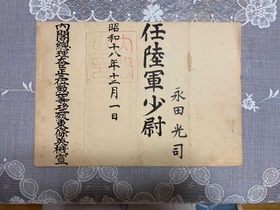 永田光司
任陸軍少尉
昭和十八年十二月一日
内閣總理大臣 勲一等 東條英機宣